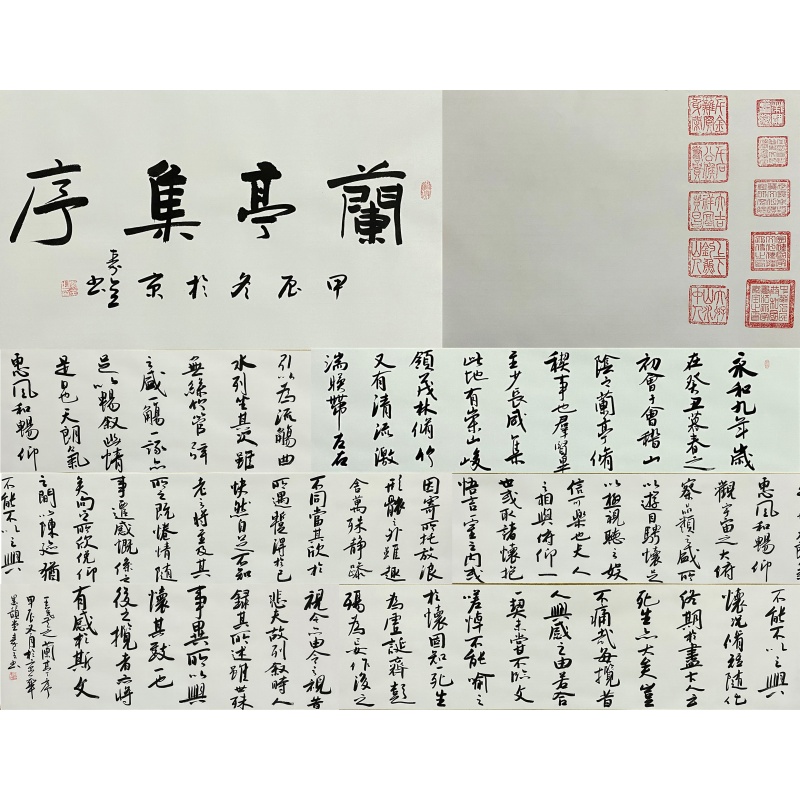 蘭亭集序
甲辰冬於京
永和九年歲
在癸丑暮春之
初會于會稽山
陰之蘭亭脩
禊事也群賢畢
至少長咸集
此地有崇山峻
領茂林脩竹
又有清流激
湍暎帶左右
引以為流觴曲
水列坐其次雖
無絲竹管弦
之盛一觴一詠亦
足以暢敘幽情
是日也天朗氣
惠風和暢仰
惠風和暢仰
觀宇宙之大俯
察品類之盛所
以遊目騁懷足
以極視聽之娛
信可樂也夫人
之相與俯仰一
世或取諸懷抱
悟言一室之內或
因寄所託放浪
形骸之外雖趣
舍萬殊靜躁
不同當其欣於
所遇蹔得於己
快然自足不知
老之將至及其
所之既惓情隨
事遷感慨係之
矣向之所欣俛仰
之間以陳迹猶
不能不以之興
不能不以之興
懷況脩短隨化
終期於盡古人云
死生亦大矣豈
不痛哉每攬昔
人興感之由若合
一契未嘗不臨文
嗟悼不能喻之
於懷固知死生
為虛誕齊彭
殤為妄作後之
視今亦由今之視昔
悲夫故列敘時人
錄其所述雖世殊
事異所以興
懷其致一也
後之攬者亦將
有感於斯文
王羲之蘭亭序
甲辰五月於京華